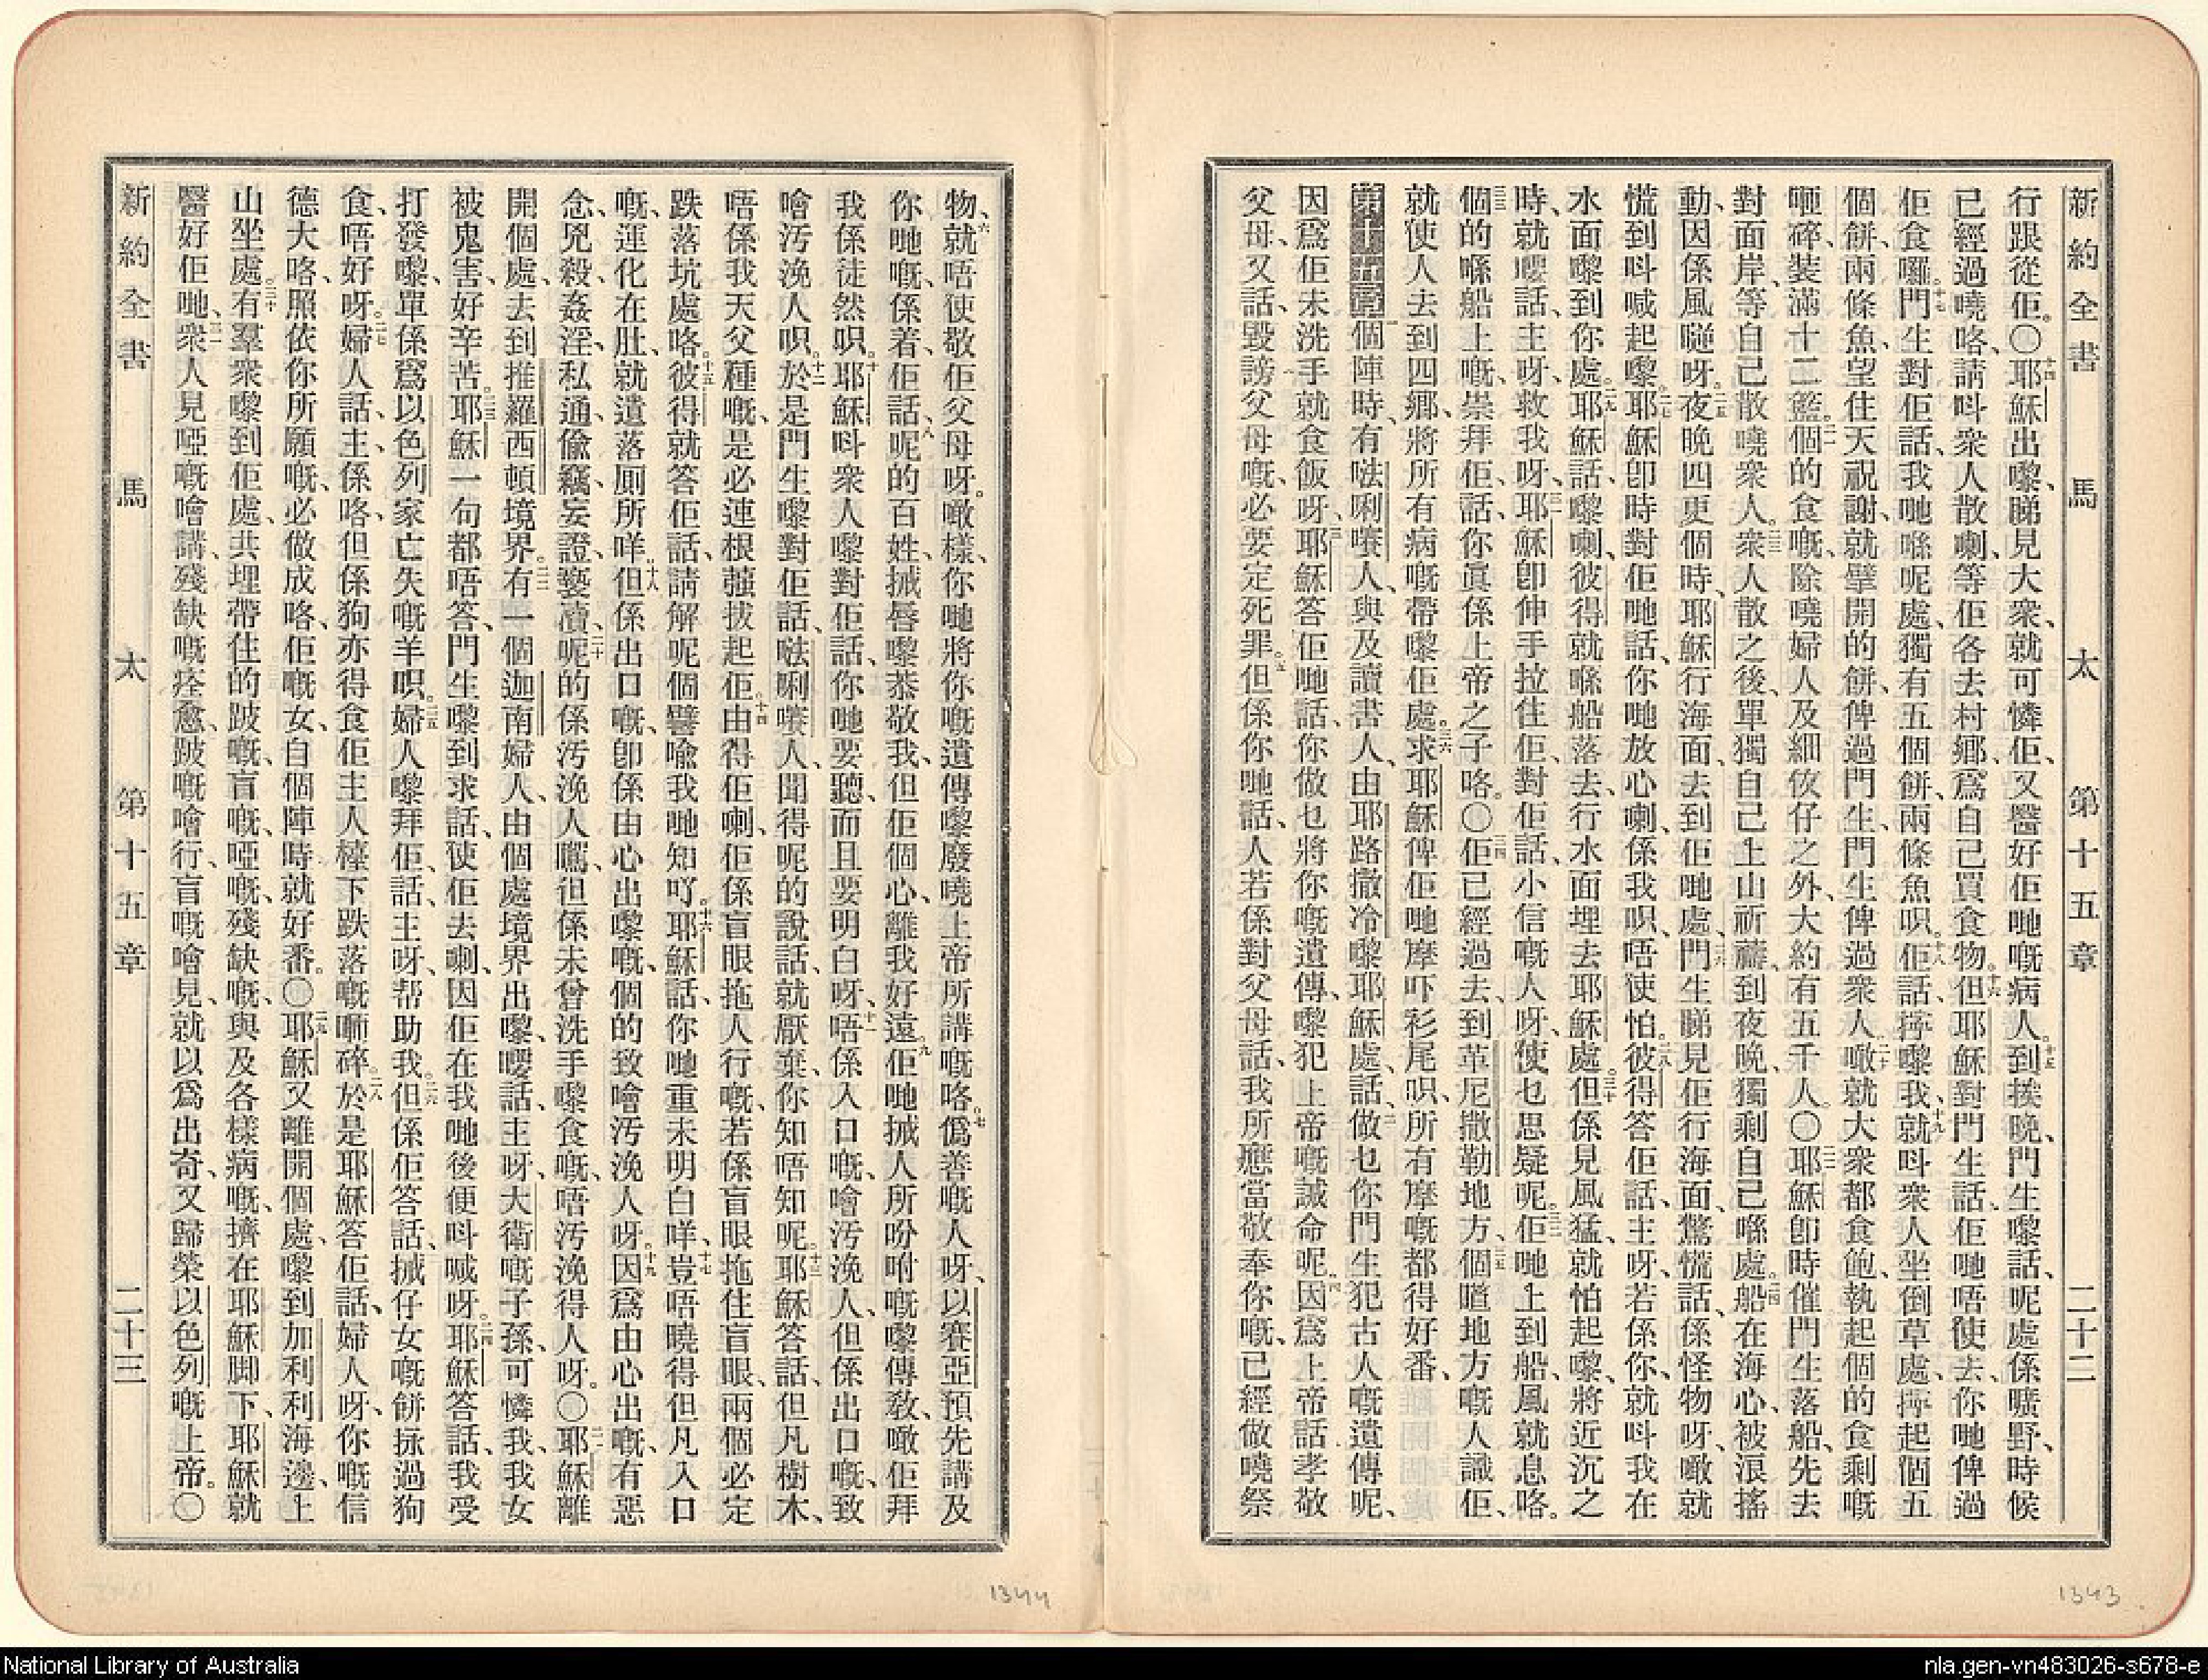 新約全書 馬 太 第十五章 二十二
行跟從佢。〇十四耶穌出嚟、睇見大衆、就可憐佢、又醫好佢哋嘅病人。十五到挨晚、門生嚟話、呢處係曠野、時候
已經過曉咯、請呌衆人散喇、等佢各去村鄉、爲自己買食物。十六但耶穌對門生話、佢哋唔使去、你哋俾過
佢食囉。十七門生對佢話、我哋喺呢處、獨有五個餅、兩條魚呮。十八佢話、擰嚟我、十九就呌衆人坐倒草處、擰起個五
個餅、兩條魚、望住天祝謝、就擘開的餅、俾過門生、門生俾過衆人、二十噉就大衆都食飽、執起個的食剩嘅
咂碎、裝滿十二籃。二一個的食嘅、除曉婦人及細佽仔之外、大約有五千人。〇二二耶穌卽時催門生落船、先去
對面岸、等自己散曉衆人。二三衆人散之後、單獨自己上山祈禱、到夜晚、獨剩自己喺處。二四船在海心、被浪搖
動、因係風𠹌呀。二五夜晚四更個時、耶穌行海面、去到佢哋處、二六門生睇見佢行海面、驚慌話、係怪物呀、噉就
慌到呌喊起嚟。二七耶穌卽時對佢哋話、你哋放心喇、係我呮、唔使怕。二八彼得答佢話、主呀、若係你、就呌我在
水面嚟到你處。二九耶穌話、嚟喇、彼得就喺船落去、行水面埋去耶穌處。三十但係見風猛、就怕起嚟、將近沉之
時、就嘤話、主呀、救我呀。三一耶穌卽伸手拉住佢、對佢話、小信嘅人呀、使乜思疑呢。三二佢哋上到船、風就息咯。
三三個的喺船上嘅、崇拜佢、話、你眞係上帝之子咯。〇三四佢已經過去、到革尼撒勒地方、三五個䠋地方嘅人識佢、
就使人去到四鄉、將所有病嘅帶嚟佢處。三六求耶穌俾佢哋摩吓衫尾呮、所有摩嘅都得好番、
第十五章 一個陣時、有𠵽唎㘔人、與及讀書人、由耶路撒冷嚟耶穌處、話、二做乜你門生犯古人嘅遺傳呢、
因爲佢未洗手就食飯呀、三耶穌答佢哋話、你做乜將你嘅遺傳、嚟犯上帝嘅誡命呢、四因爲上帝話孝敬
父母、又話、毀謗父母嘅、必要定死罪。五但係你哋話、人若係對父母話、我所應當敬奉你嘅、已經做曉祭
物、六就唔使敬佢父母呀。噉樣、你哋將你嘅遺傳嚟廢曉上帝所講嘅咯。七僞善嘅人呀、以賽亞預先講及
你哋嘅、係着、佢話、八呢的百姓、搣唇嚟恭敬我、但佢個心、離我好遠。九佢哋搣人所吩咐嘅嚟傳敎、噉佢拜
我係徒然呮。十耶穌呌衆人嚟、對佢話、你哋要聽、而且要明白呀、十一唔係入口嘅、噲汚浼人、但係出口嘅、致
噲汚浼人呮。十二於是門生嚟對佢話、𠵽唎㘔人聞得呢的說話、就厭棄、你知唔知呢。十三耶穌答話、但凡樹木、
唔係我天父種嘅、是必連根蔃拔起佢。十四由得佢喇、佢係盲眼拖人行嘅、若係盲眼拖住盲眼、兩個必定
跌落坑處咯。十五彼得就答佢話、請解呢個譬喩我哋知吖。十六耶穌話、你哋重未明白咩、十七豈唔曉得但凡入口
嘅、運化在肚、就遺落厠所咩。十八但係出口嘅、卽係由心出嚟嘅、個的致噲汚浼人呀。十九因爲由心出嘅、有惡
念、兇殺、姦淫、私通、偷竊、妄證、褻瀆、二十呢的係汚浼人嘅、但係未曾洗手嚟食嘅、唔汚浼得人呀。〇二一耶穌離
開個處、去到推羅西頓境界。二二有一個迦南婦人、由個處境界出嚟、嘤話、主呀、大衛嘅子孫、可憐我、我女
被鬼害、好辛苦。二三耶穌一句都唔答、門生嚟到求話、使佢去喇、因佢在我哋後便呌喊呀。二四耶穌答話、我受
打發嚟、單係爲以色列家亡失嘅羊呮。二五婦人嚟拜佢、話、主呀、帮助我。二六但係佢答話、搣仔女嘅餅、㧣過狗
食、唔好呀。二七婦人話、主、係咯、但係狗亦得食佢主人檯下跌落嘅𠹳碎。二八於是耶穌答佢話、婦人呀、你嘅信
德大咯、照依你所願嘅、必做成咯、佢嘅女、自個陣時就好番。〇二九耶穌又離開個處、嚟到加利利海邊、上
山坐處。三十有羣衆嚟到佢處、共埋帶住的跛嘅、盲嘅、啞嘅、殘缺嘅、與及各樣病嘅、擠在耶穌脚下、耶穌就
醫好佢哋、三一衆人見啞嘅噲講、殘缺嘅痊愈、跛嘅噲行、盲嘅噲見、就以爲出奇、又歸榮以色列嘅上帝。〇
新約全書 馬 太 第十五章 二十三
1344
1343
National Library of Australia
nla.gen-vn483026-s678-e